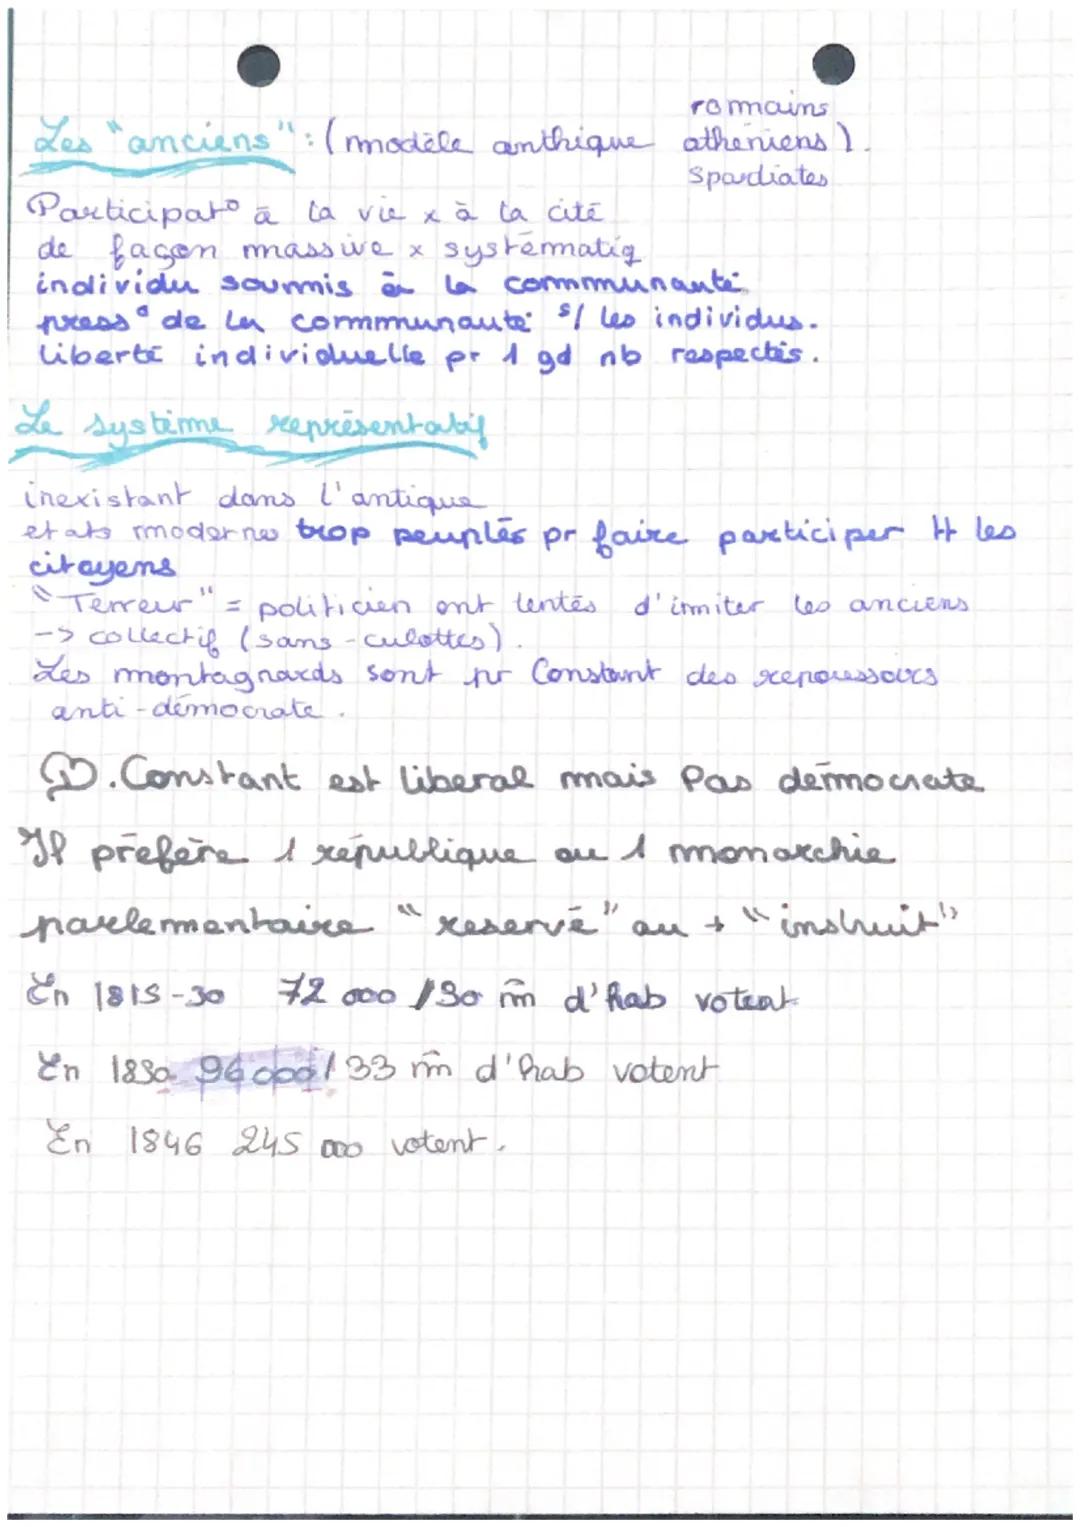 romains
Les "anciens" : (modèle anthique athéniens).
Spardiates
Participat° à la vie x à la cité
de façon massive x systématiq
individu soumis à la communauté
press° de la communauté s/ les individus.
liberté individuelle pr 1 gd nb respectés.
Le système représentatif
inexistant dans l'antique
etats modernes trop peuplés pr faire participer tt les
citoyens
"Terreur" = politicien ont tentés d'imiter les anciens
-> collectif (sans-culottes).
Les montagnards sont pr Constant des repoussoirs
anti-démocrate.
B. Constant est liberal mais Pas démocrate
Il préfère 1 république ou 1 monarchie
parlementaire "reservé" au + "instruit"
En 1815-30 72 000 / 30 m d'hab votent
En 1830 96 000 / 33 m d'hab votent
En 1846 245 000 votent.